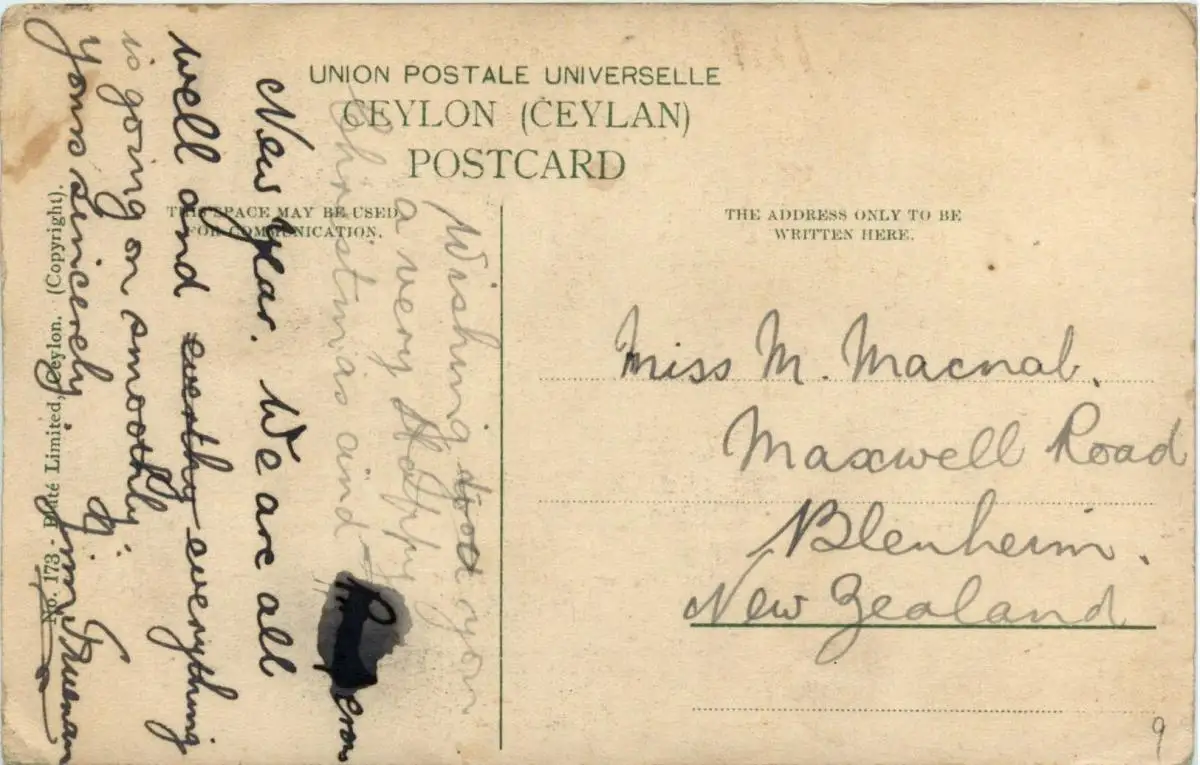 UNION POSTALE UNIVERSELLE
CEYLON (CEYLAN)
POSTCARD
THIS SPACE MAY BE USED
FOR COMMUNICATION.
THE ADDRESS ONLY TO BE
WRITTEN HERE.
Wishing you
a very Happy
Christmas and
New Year. We are all
well and everthy everything
is going on smoothly.
Yours sincerely
Jim Trueman
Miss M. Macnab.
Maxwell Road
Blenheim.
New Zealand
No. 173 - Plâté Limited, Ceylon. (Copyright).
9